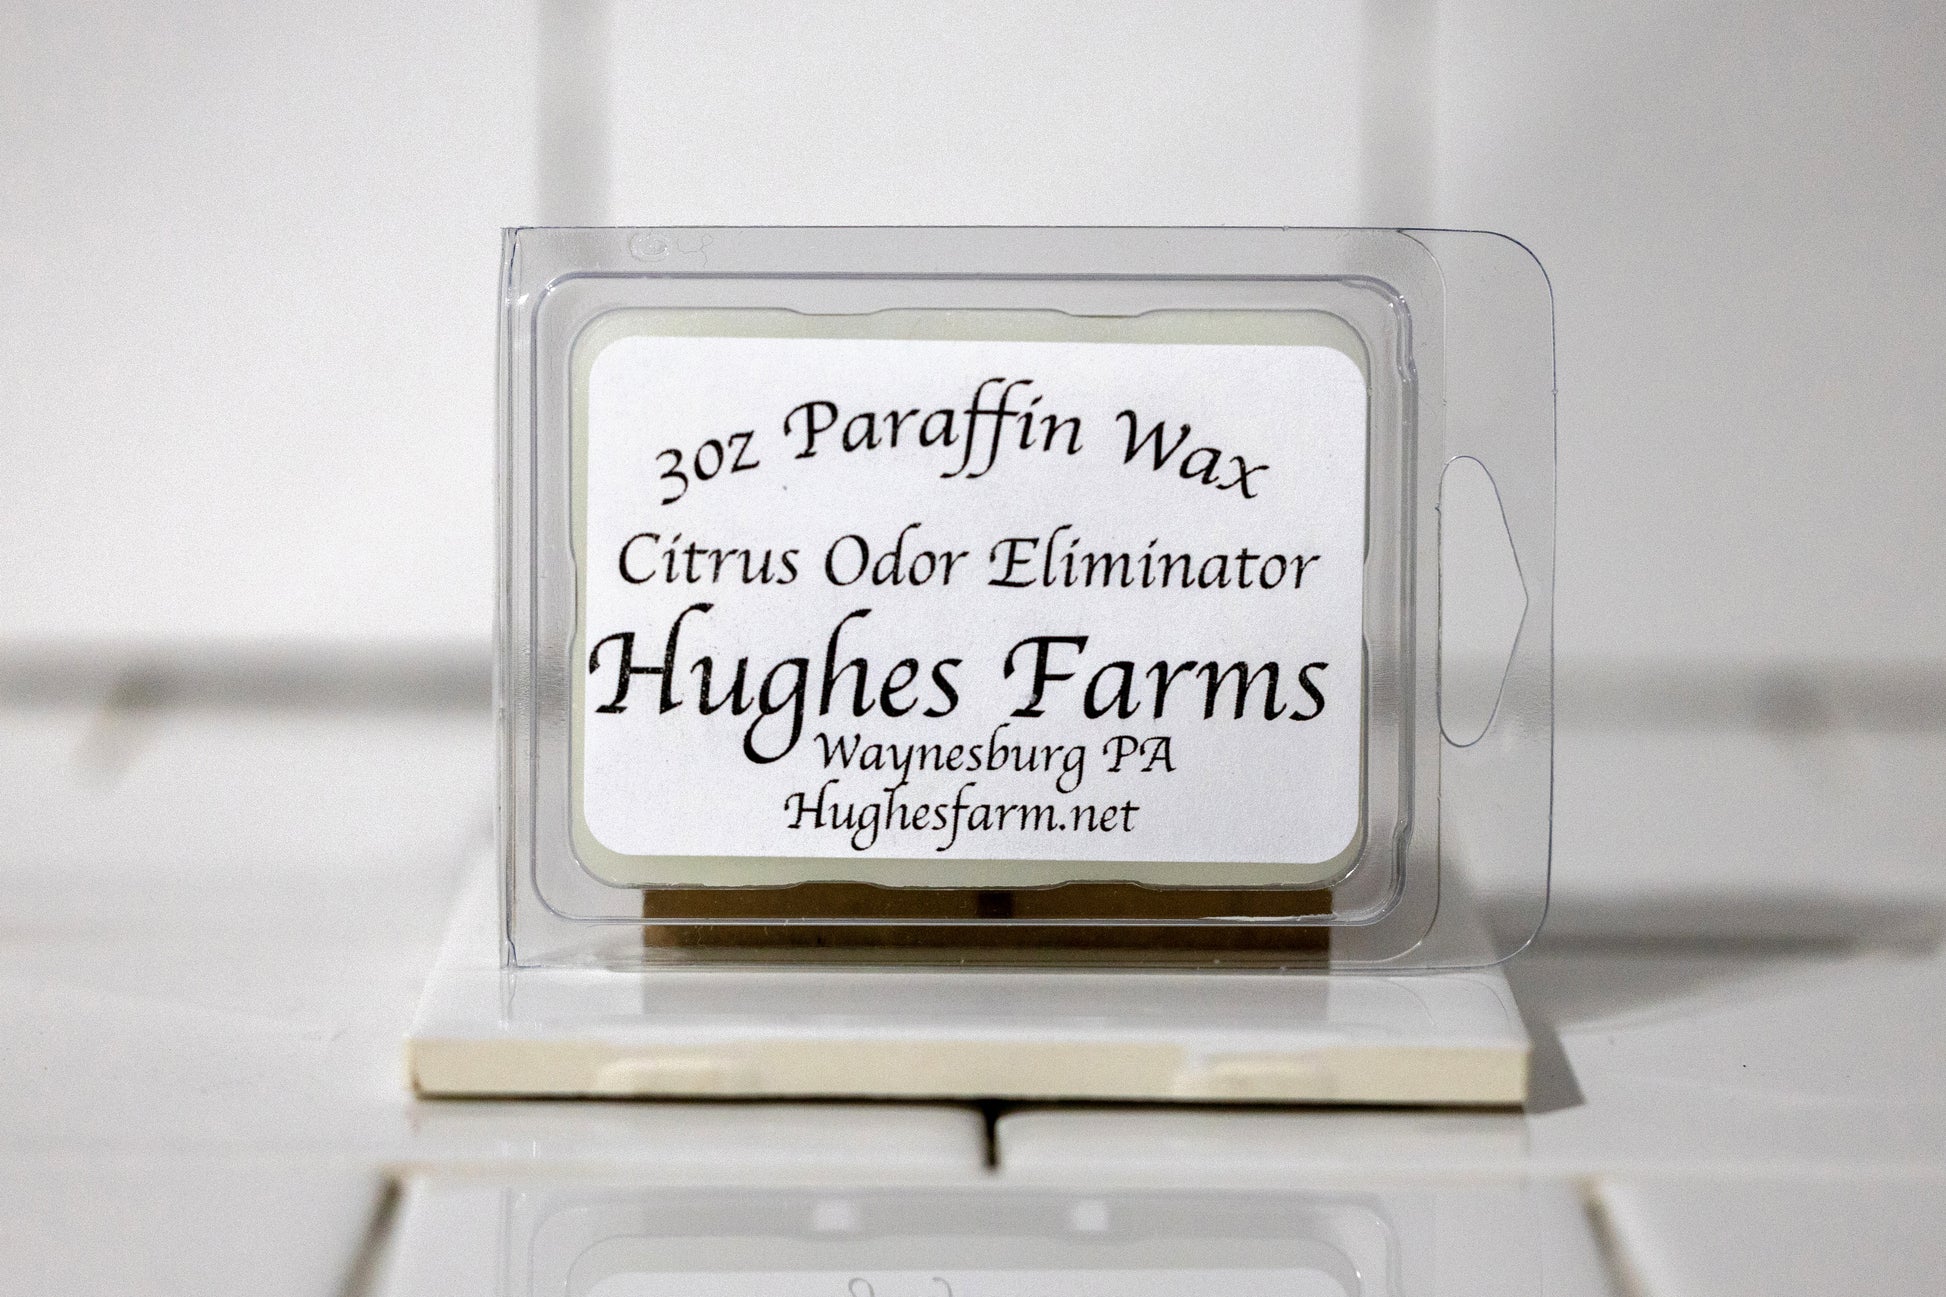 3oz Paraffin Wax
Citrus Odor Eliminator
Hughes Farms
Waynesburg PA
Hughesfarm.net